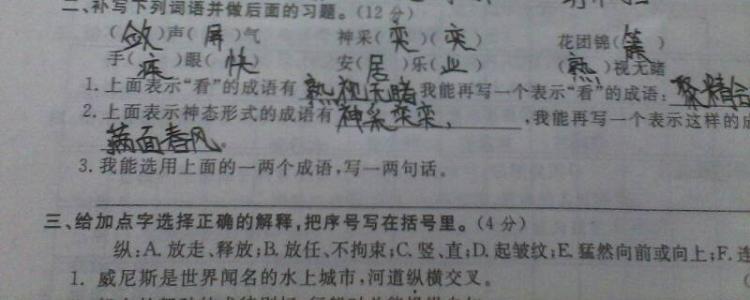 二、补写下列词语并做后面的习题。(12分)
(敛)声(屏)气 神采(奕)(奕) 花团锦(簇)
手(疾)眼(快) 安(居)乐(业) (熟)视无睹
1.上面表示“看”的成语有熟视无睹我能再写一个表示“看”的成语:聚精会
2.上面表示神态形式的成语有神采奕奕,,我能再写一个表示这样的成
满面春风。
3.我能选用上面的一两个成语,写一两句话。
三、给加点字选择正确的解释,把序号写在括号里。(4分)
纵:A.放走、释放;B.放任、不拘束;C.竖、直;D.起皱纹;E.猛然向前或向上;F.连
1.威尼斯是世界闻名的水上城市,河道纵横交叉。